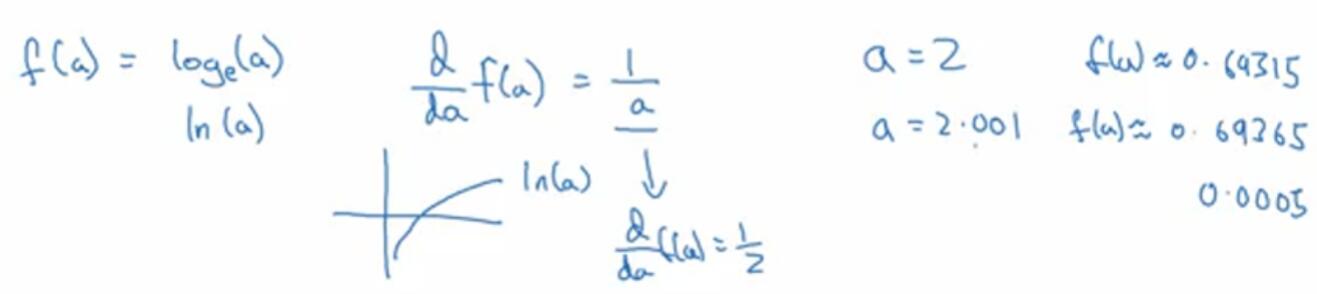 f(a) = logₑ(a)
ln(a)
d/da f(a) = 1/a
ln(a)
d/da f(a) = 1/2
a = 2 f(a) ≈ 0.69315
a = 2.001 f(a) ≈ 0.69365
0.0005